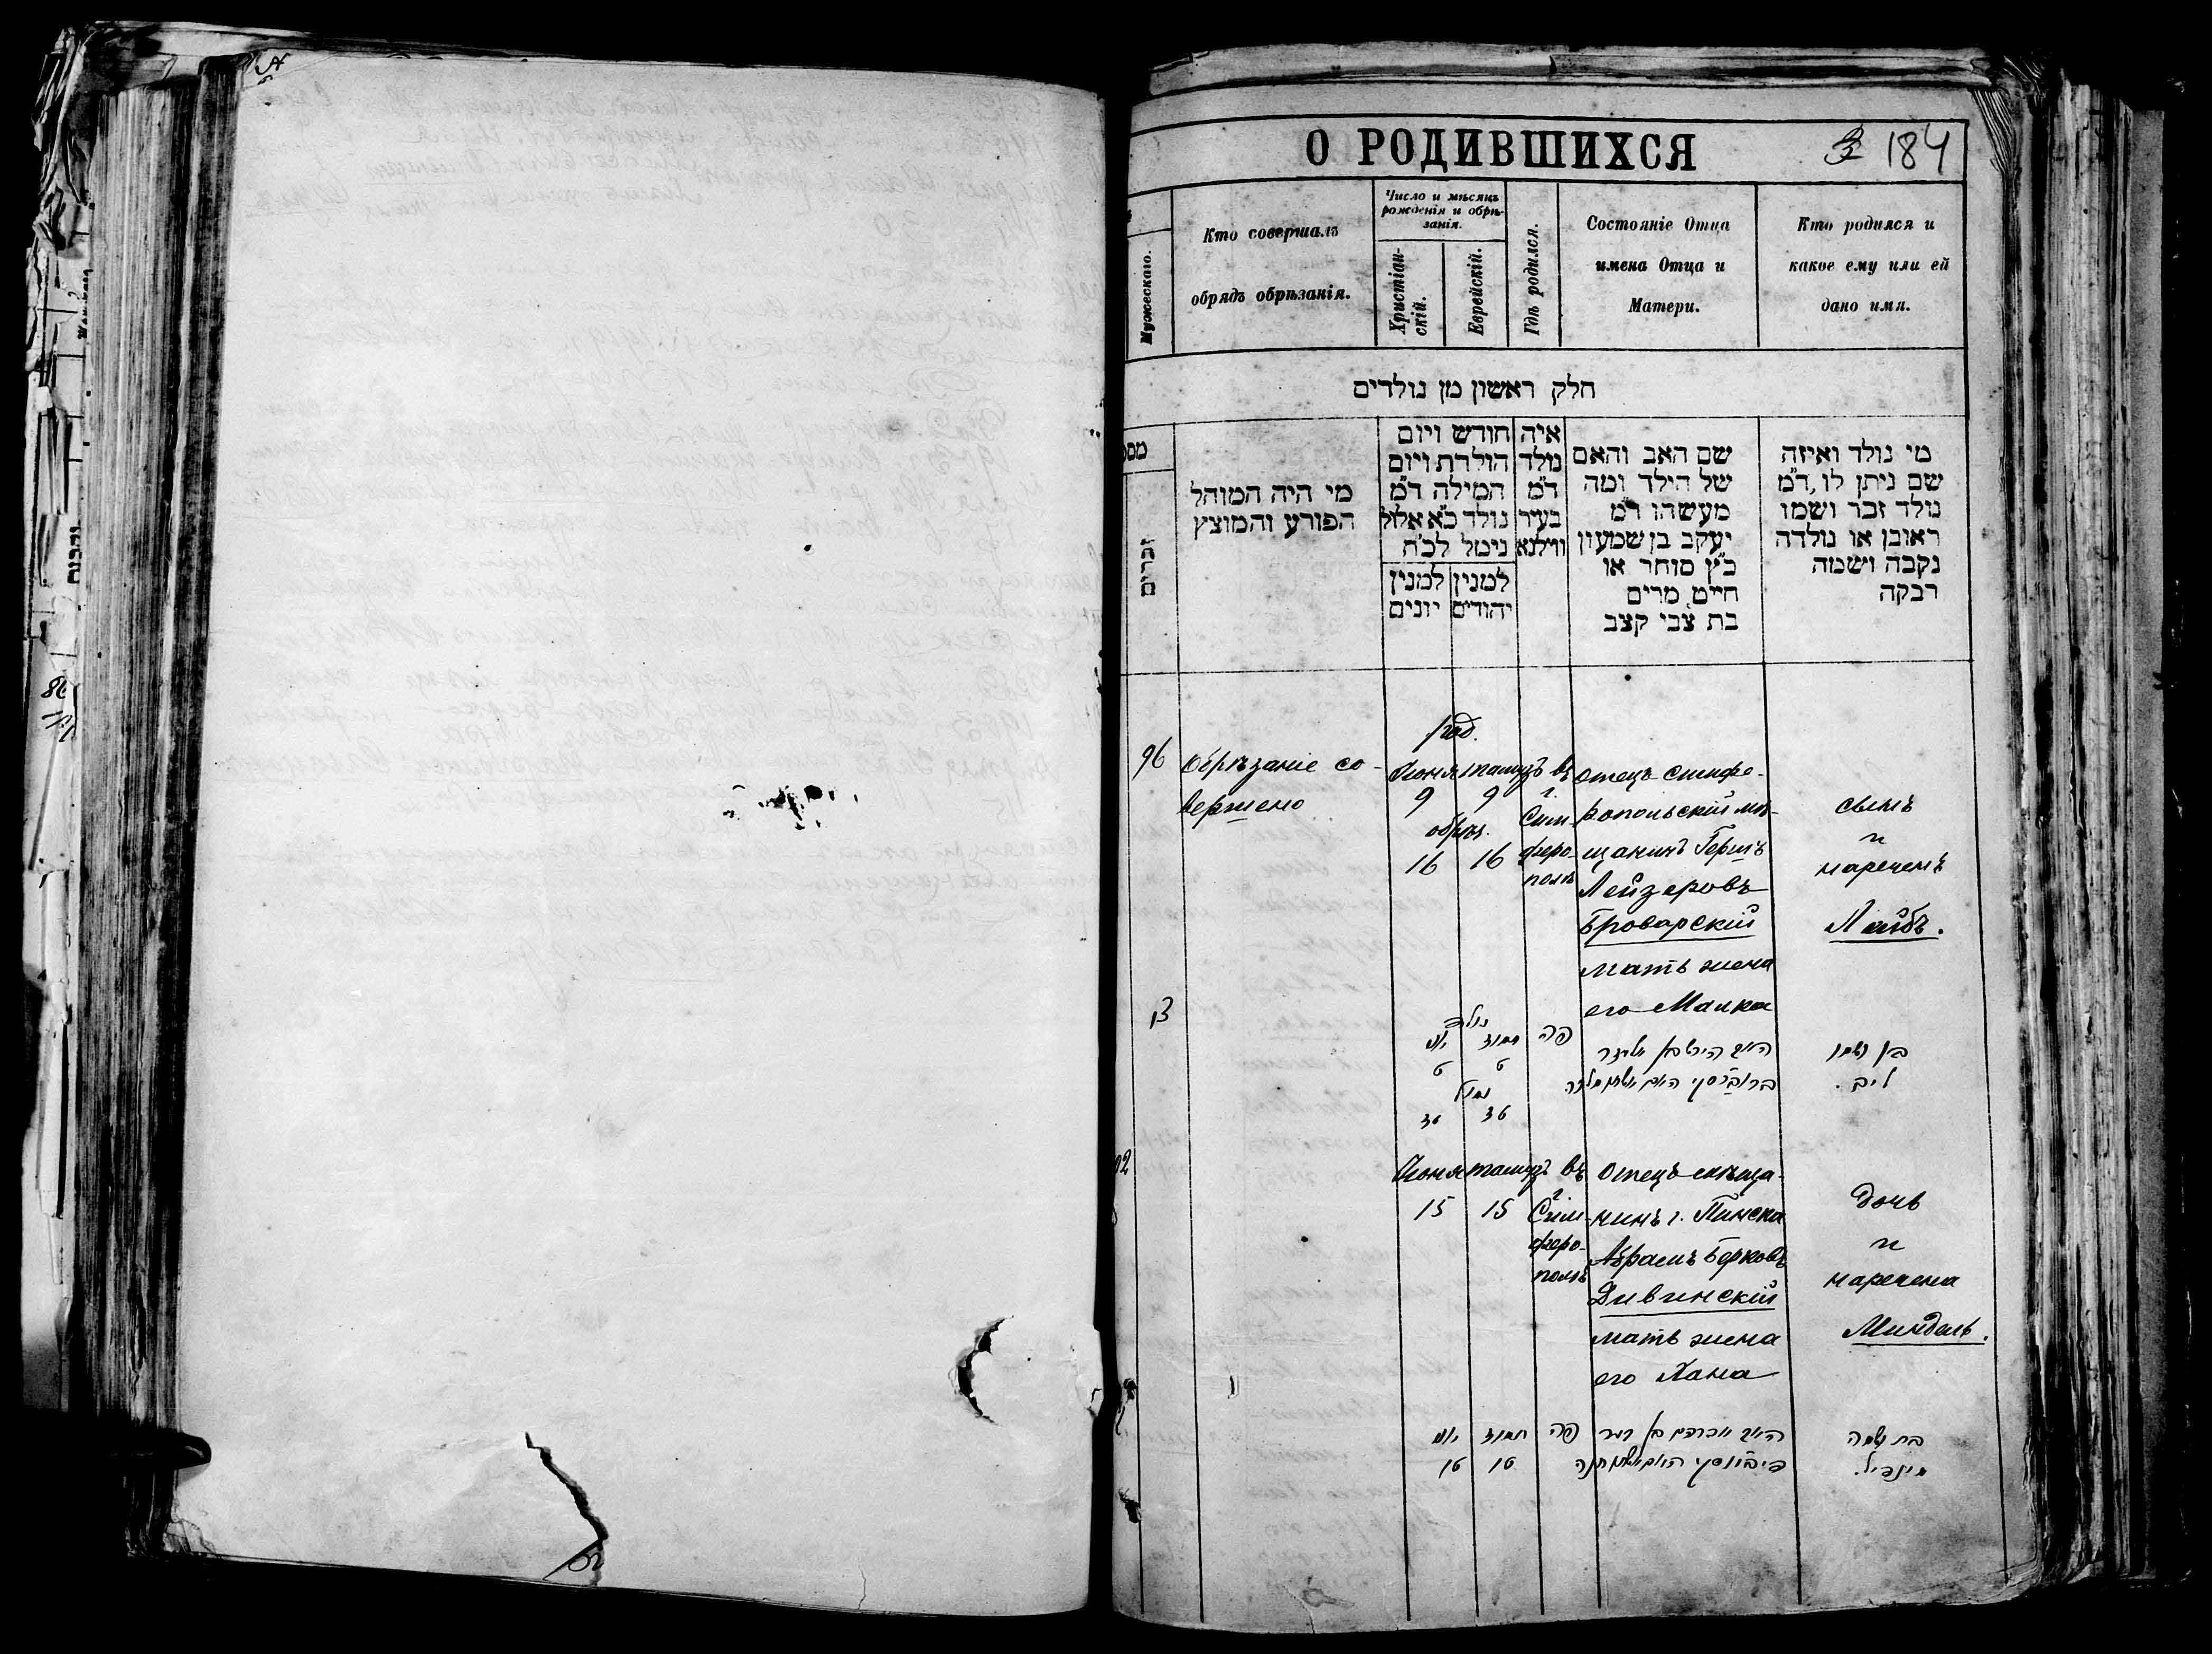 О РОДИВШИХСЯ
184
Мужескаго.
Кто совершалъ
обрядъ обрѣзанія.
Число и мѣсяцъ
рожденія и обрѣ-
занія.
Христіан-
скій.
Еврейскій.
Гдѣ родился.
Состояніе Отца
имена Отца и
Матери.
Кто родился и
какое ему или ей
дано имя.
חלק ראשון מן נולדים
זכרים
מי היה המוהל
הפורע והמוצץ
חודש ויום
הולדת ויום
המילה ד"מ
נולד כ"א אלול
נימל לכ"ח
למנין יהודים
למנין יונים
איה
נולד
ד"מ
בעיר
ווילנא
שם האב והאם
של הילד ומה
מעשהו ד"מ
יעקב בן שמעון
כ"ץ סוחר או
חייט, מרים
בת צבי קצב
מי נולד ואיזה
שם ניתן לו, ד"מ
נולד זכר ושמו
ראובן או נולדה
נקבה ושמה
רבקה
96
обрѣзаніе со-
вершено
род.
Іюня тамузъ
9 9
обрѣз.
16 16
въ
г.
Сим-
феро-
полѣ
отецъ симфе-
ропольскій мѣ-
щанинъ Гершъ
Лейзеровъ
Броварскій
мать жена
его Малка
сынъ
и
нареченъ
Лейбъ.
נולד
יוני תמוז
ט ט
נמול
טז טז
פה
האב הירש בן אליעזר
בן ושמו
ליב.
Іюня тамузъ
15 15
въ
г.
Сим-
феро-
полѣ
отецъ мѣща-
нинъ г. Пинска
Абрамъ Берковъ
Дивинскій
мать жена
его Хана
дочь
и
наречена
Миндель.
יוני תמוז
טו טו
פה
האב אברהם בן דוב
בת ושמה
מינדיל.